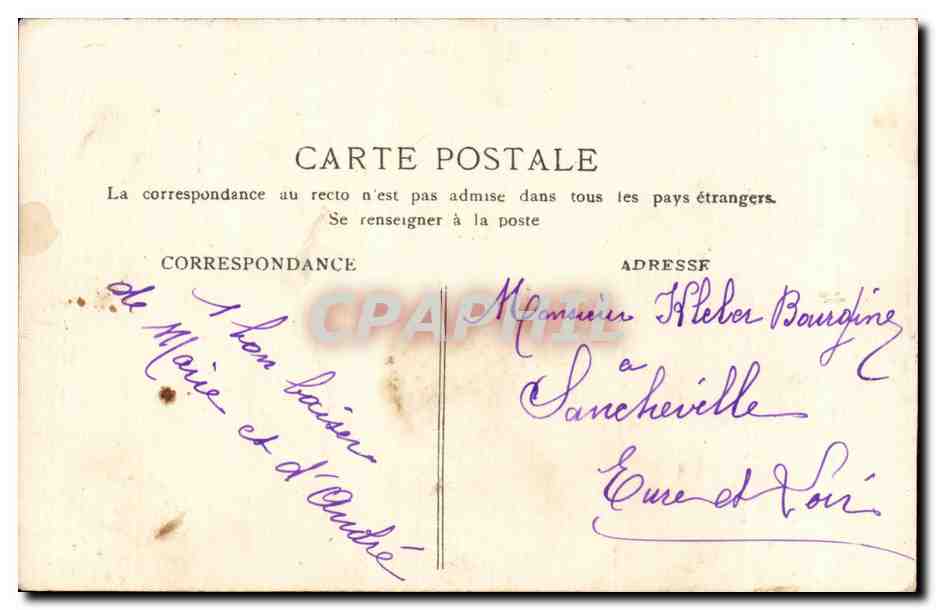 CARTE POSTALE
La correspondance au recto n'est pas admise dans tous les pays étrangers.
Se renseigner à la poste
CORRESPONDANCE
1 bon baiser
de Marie et d'André
ADRESSE
Monsieur Kleber Bourgine
a
Sancheville
Eure et Loir
CPAPHIL